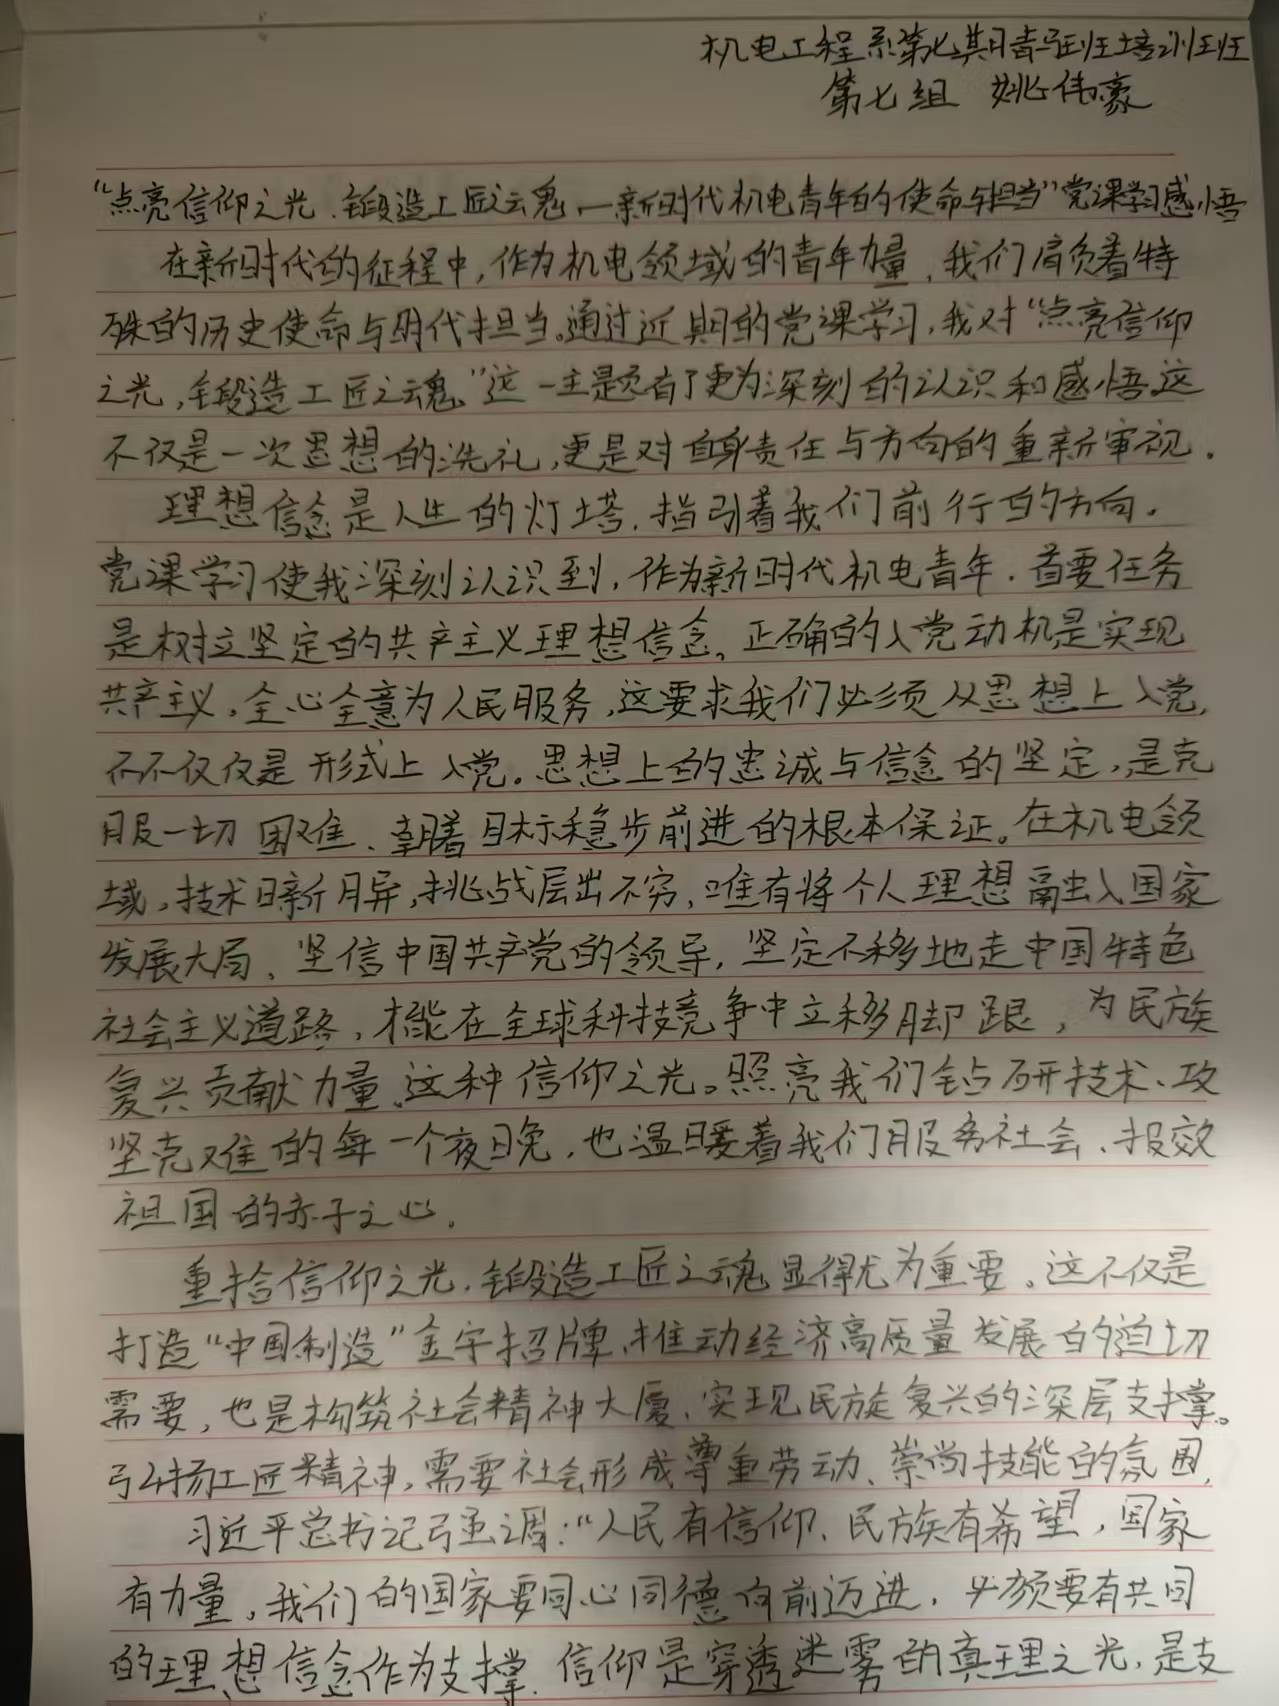 机电工程系第七期青马班培训班
第七组 姚伟豪
“点亮信仰之光、锻造工匠之魂,—新时代机电青年的使命与担当”党课学习感悟
在新时代的征程中,作为机电领域的青年力量,我们肩负着特
殊的历史使命与时代担当。通过近期的党课学习,我对“点亮信仰
之光,锻造工匠之魂”这一主题有了更为深刻的认识和感悟,这
不仅是一次思想的洗礼,更是对自身责任与方向的重新审视。
理想信念是人生的灯塔,指引着我们前行的方向。
党课学习使我深刻认识到,作为新时代机电青年,首要任务
是树立坚定的共产主义理想信念。正确的入党动机是实现
共产主义,全心全意为人民服务,这要求我们必须从思想上入党,
而不仅仅是形式上入党。思想上的忠诚与信念的坚定,是克
服一切困难、朝着目标稳步前进的根本保证。在机电领
域,技术日新月异,挑战层出不穷,唯有将个人理想融入国家
发展大局、坚信中国共产党的领导,坚定不移地走中国特色
社会主义道路,才能在全球科技竞争中立移脚跟,为民族
复兴贡献力量。这种信仰之光。照亮我们钻研技术、攻
坚克难的每一个夜晚,也温暖着我们服务社会、报效
祖国的赤子之心。
重拾信仰之光,锻造工匠之魂显得尤为重要。这不仅是
打造“中国制造”金字招牌、推动经济高质量发展的迫切
需要,也是构筑社会精神大厦、实现民族复兴的深层支撑。
弘扬工匠精神,需要社会形成尊重劳动、崇尚技能的氛围,
习近平总书记强调:“人民有信仰、民族有希望,国家
有力量,我们的国家要同心同德向前迈进,必须要有共同
的理想信念作为支撑。信仰是穿透迷雾的真理之光,是支